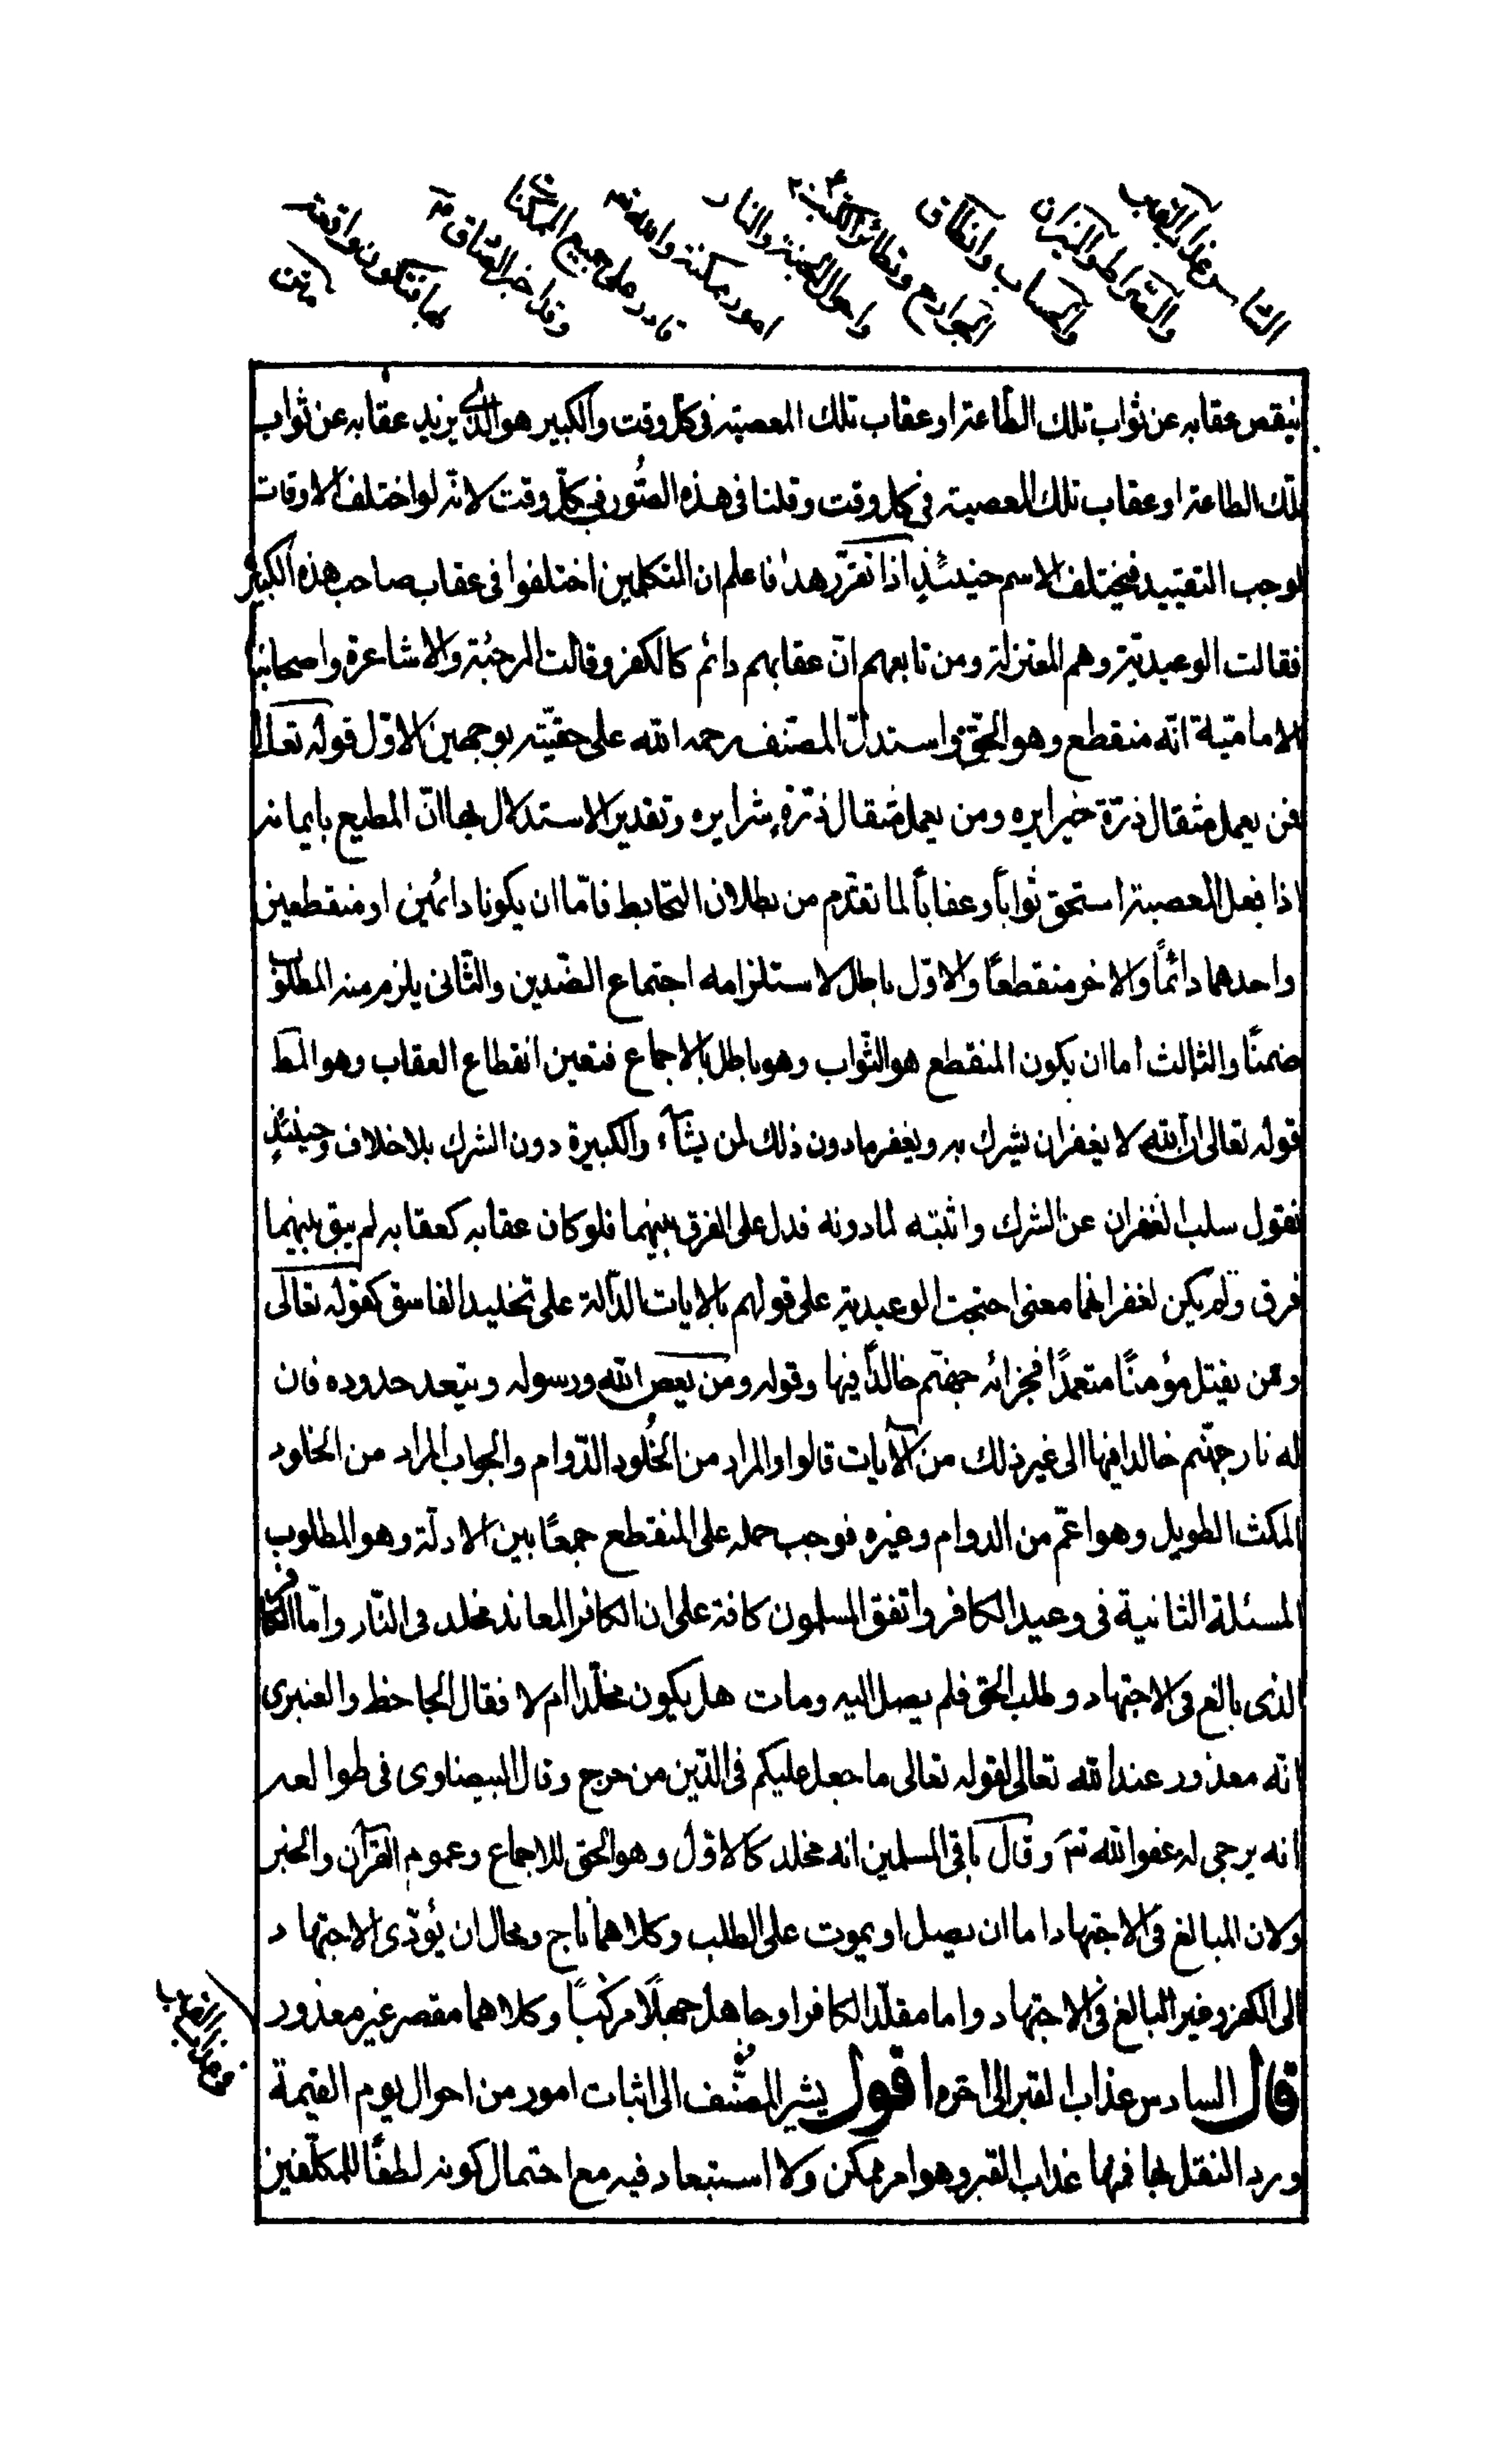 السادس عذاب القبر
والصراط والميزان
والحساب وانطاق
الجوارح وتطائر الكتب
واحوال الجنة والنار
امور ممكنة والله تعالى
قادر على جميع الممكنات
وقد اخبر الصادق
بها فتكون واقعة
ينقص عقابه عن ثواب تلك الطاعة او عقاب تلك المعصية فى كل وقت والكبير هو الذى يزيد عقابه عن ثواب
تلك الطاعة او عقاب تلك المعصية فى كل وقت وقلنا فى هذه الصور فى كل وقت لانه لو اختلف الاوقات
لوجب التقييد فيختلف الاسم حينئذٍ اذا تقرر هذا فاعلم ان المتكلمين اختلفوا فى عقاب صاحب هذه الكبيرة
فقالت الوعيدية وهم المعتزلة ومن تابعهم ان عقابهم دائم كالكفر وقالت المرجئة والاشاعرة واصحابنا
الامامية انه منقطع وهو الحق واستدل المصنف رحمه الله على حقيته بوجهين الاول قوله تعالى
فمن يعمل مثقال ذرة خيرا يره ومن يعمل مثقال ذرة شرا يره وتقدير الاستدلال بها ان المطيع بايمانه
اذا فعل المعصية استحق ثوابًا وعقابًا لما تقدم من بطلان التحابط فامّا ان يكونا دائمين او منقطعين
واحدهما دائمًا والاخر منقطعًا والاول باطل لاستلزامه اجتماع الضدين والثانى يلزم منه المطلوب
ضمنًا والثالث اما ان يكون المنقطع هو الثواب وهو باطل بالاجماع فتعين انقطاع العقاب وهو المط
قوله تعالى ان الله لا يغفر ان يشرك به ويغفر ما دون ذلك لمن يشآء والكبيرة دون الشرك بلا خلاف وحينئذٍ
نقول سلب الغفران عن الشرك واثبته لما دونه فدل على الفرق بينهما فلو كان عقابه كعقابه لم يبق بينهما
فرق ولم يكن لغفرانهما معنى احتجت الوعيدية على قولهم بالايات الدالة على تخليد الفاسق كقوله تعالى
ومن يقتل مؤمنًا متعمدًا فجزائه جهنم خالدًا فيها وقوله ومن يعص الله ورسوله ويتعد حدوده فان
له نار جهنم خالدا فيها الى غير ذلك من الآيات قالوا والمراد من الخلود الدوام والجواب المراد من الخلود
المكث الطويل وهو اعم من الدوام وغيره فوجب حمله على المنقطع جمعًا بين الادلة وهو المطلوب
المسئلة الثانية فى وعيد الكافر واتفق المسلمون كافة على ان الكافر المعاند مخلد فى النار وامّا الكافر
الذى بالغ فى الاجتهاد وطلب الحق فلم يصل اليه ومات هل يكون مخلدا ام لا فقال الجاحظ والعنبرى
انه معذور عند الله تعالى لقوله تعالى ما جعل عليكم فى الدين من حرج وقال البيضاوى فى طوالعه
انه يرجى له عفو الله تع وقال باقى المسلمين انه مخلد كالاول وهو الحق للاجماع وعموم القرآن والخبر
ولان المبالغ فى الاجتهاد اما ان يصل او يموت على الطلب وكلاهما ناج ومحال ان يُؤدى الاجتهاد
الى الكفر وغير المبالغ فى الاجتهاد واما مقلد الكافر او جاهل جهلًا مركبًا وكلاهما مقصر غير معذور
قال السادس عذاب القبر الى اخره اقول يشير المصنف الى اثبات امور من احوال يوم القيمة
ورد النقل بها فمنها عذاب القبر وهو امر ممكن ولا استبعاد فيه مع احتمال كونه لطفًا للمكلفين